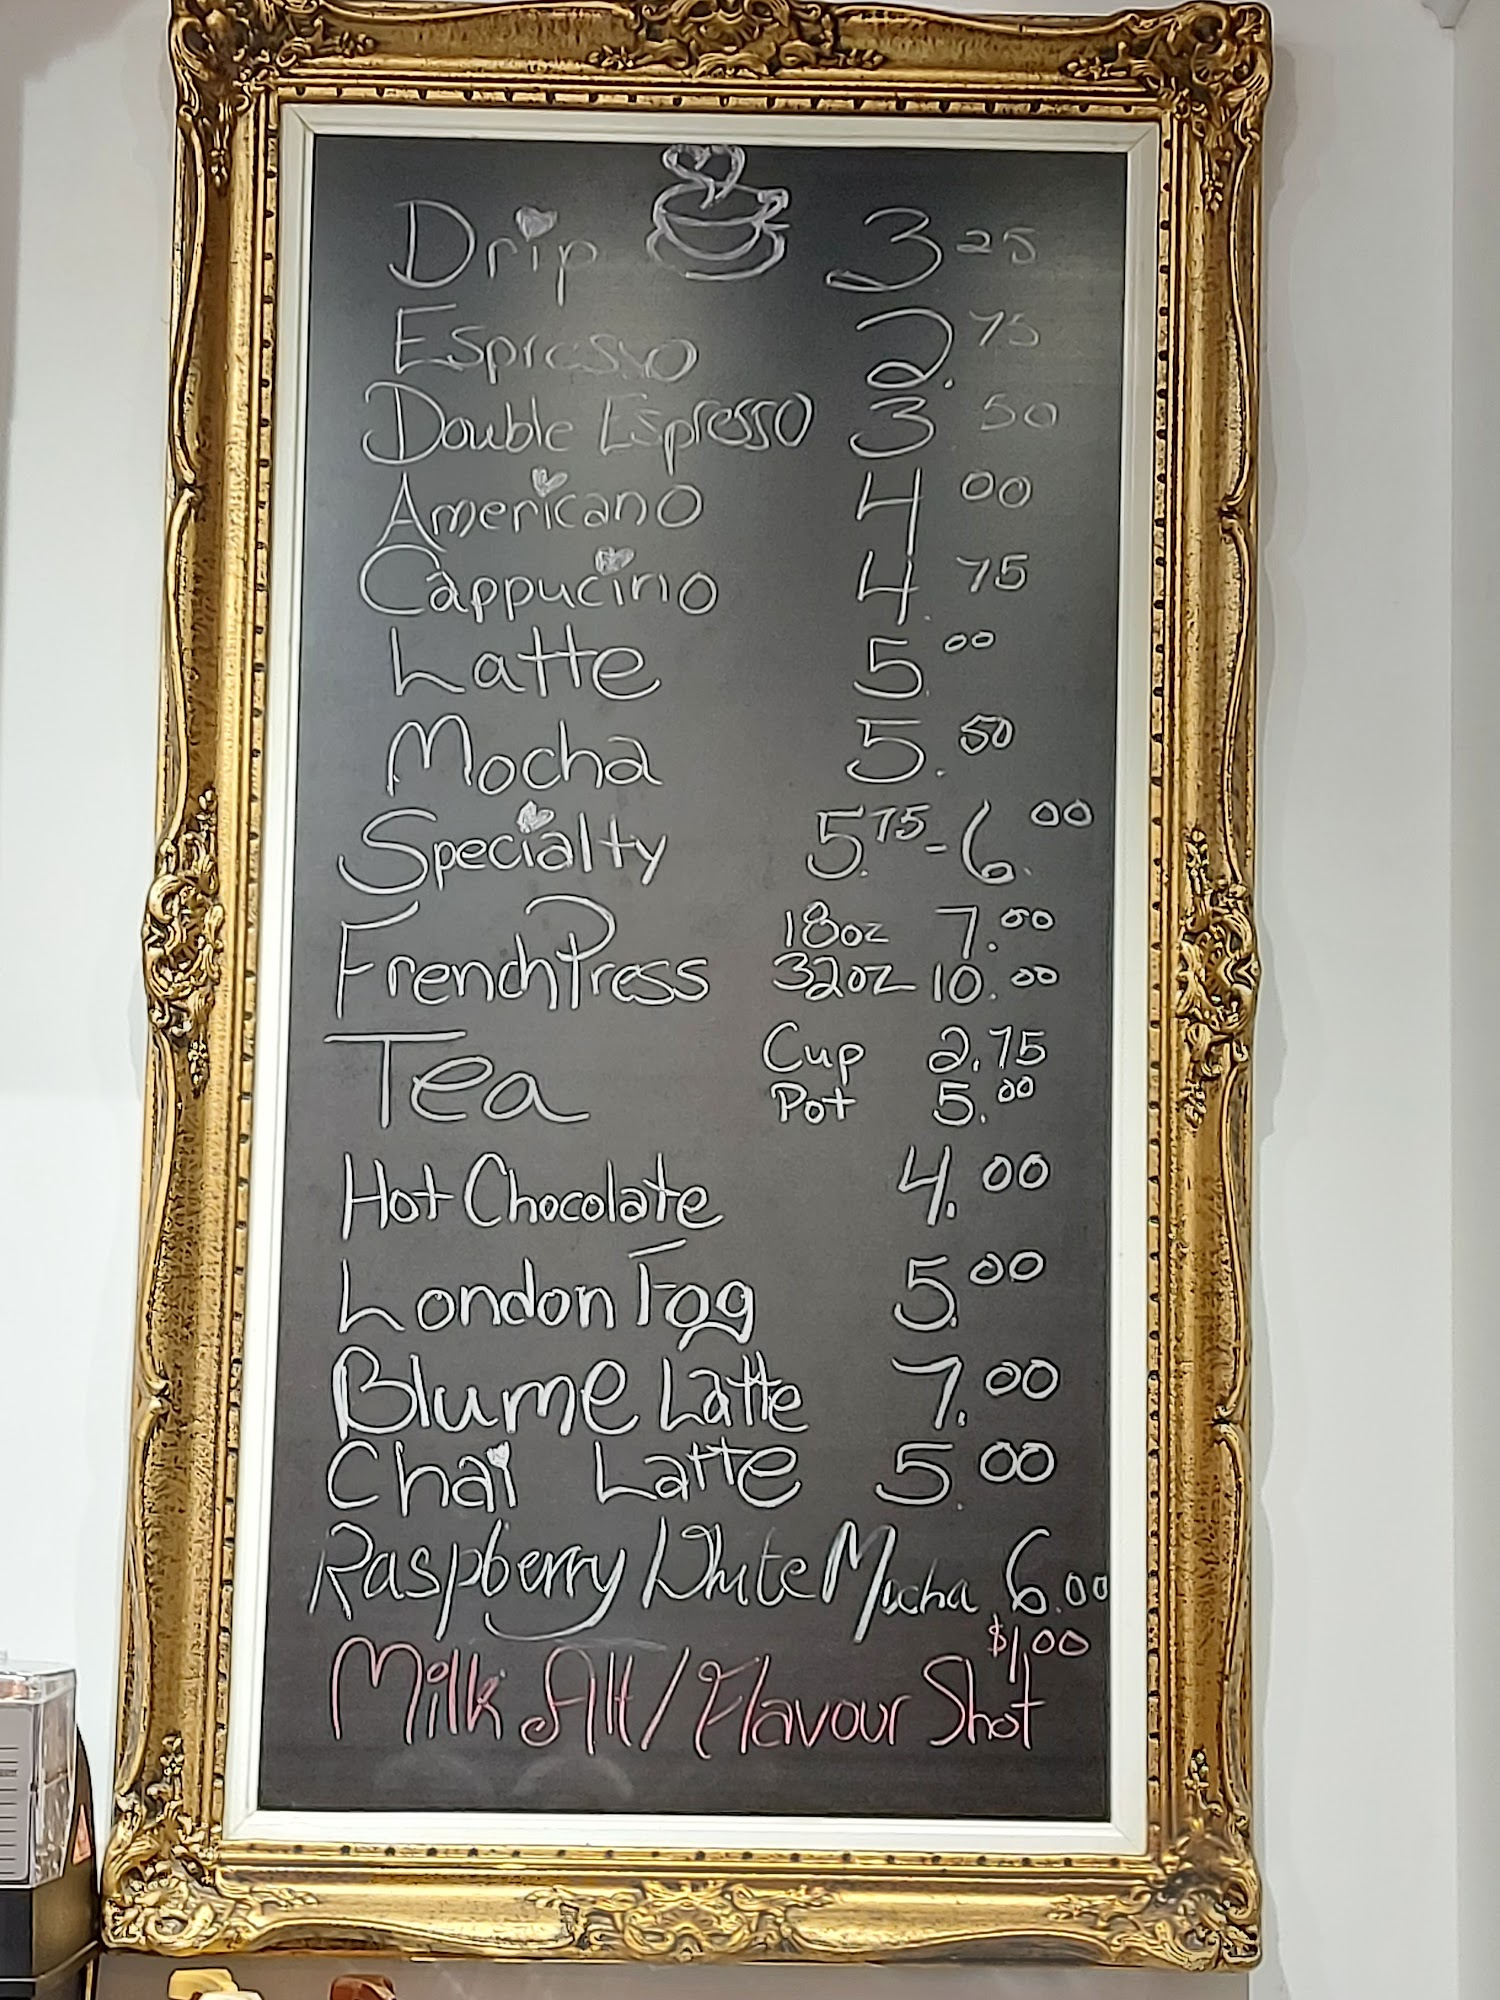 Drip 3 25
Espresso 2. 75
Double Espresso 3 50
Americano 4 00
Cappucino 4. 75
Latte 5. 00
Mocha 5. 50
Specialty 5.75 - 6.00
French Press 18oz 7.00
32oz 10.00
Tea Cup 2.75
Pot 5.00
Hot Chocolate 4.00
London Fog 5.00
Blume Latte 7.00
Chai Latte 5.00
Raspberry White Mocha 6.00
$1.00
Milk Alt/Flavour Shot